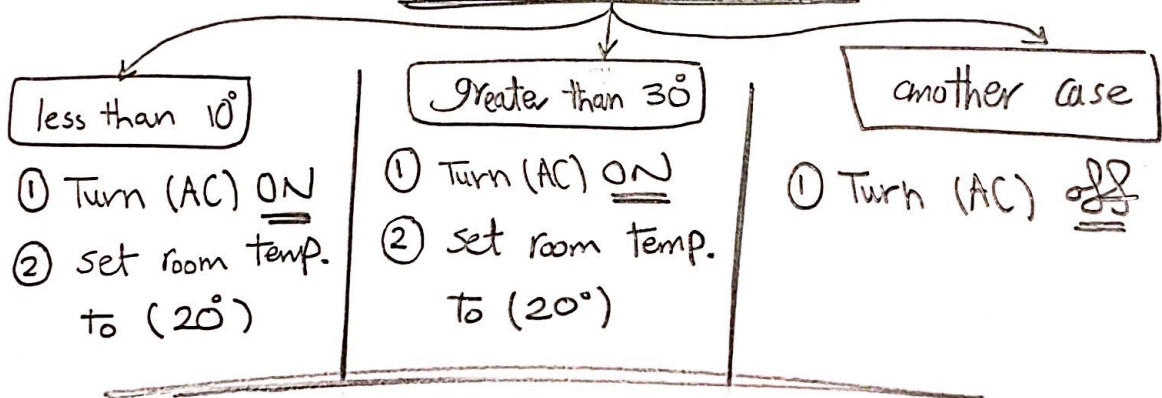 less than 10°
① Turn (AC) ON
② set room temp.
to (20°)
greater than 30°
① Turn (AC) ON
② set room temp.
to (20°)
another case
① Turn (AC) off